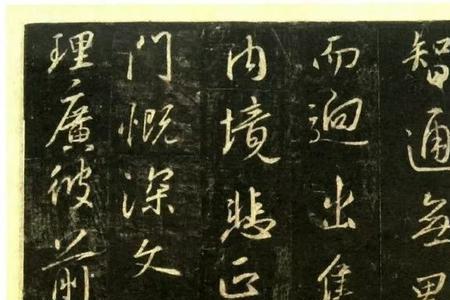 智通無累
而迥出隻
內境悲正
門慨深文
理廣彼前